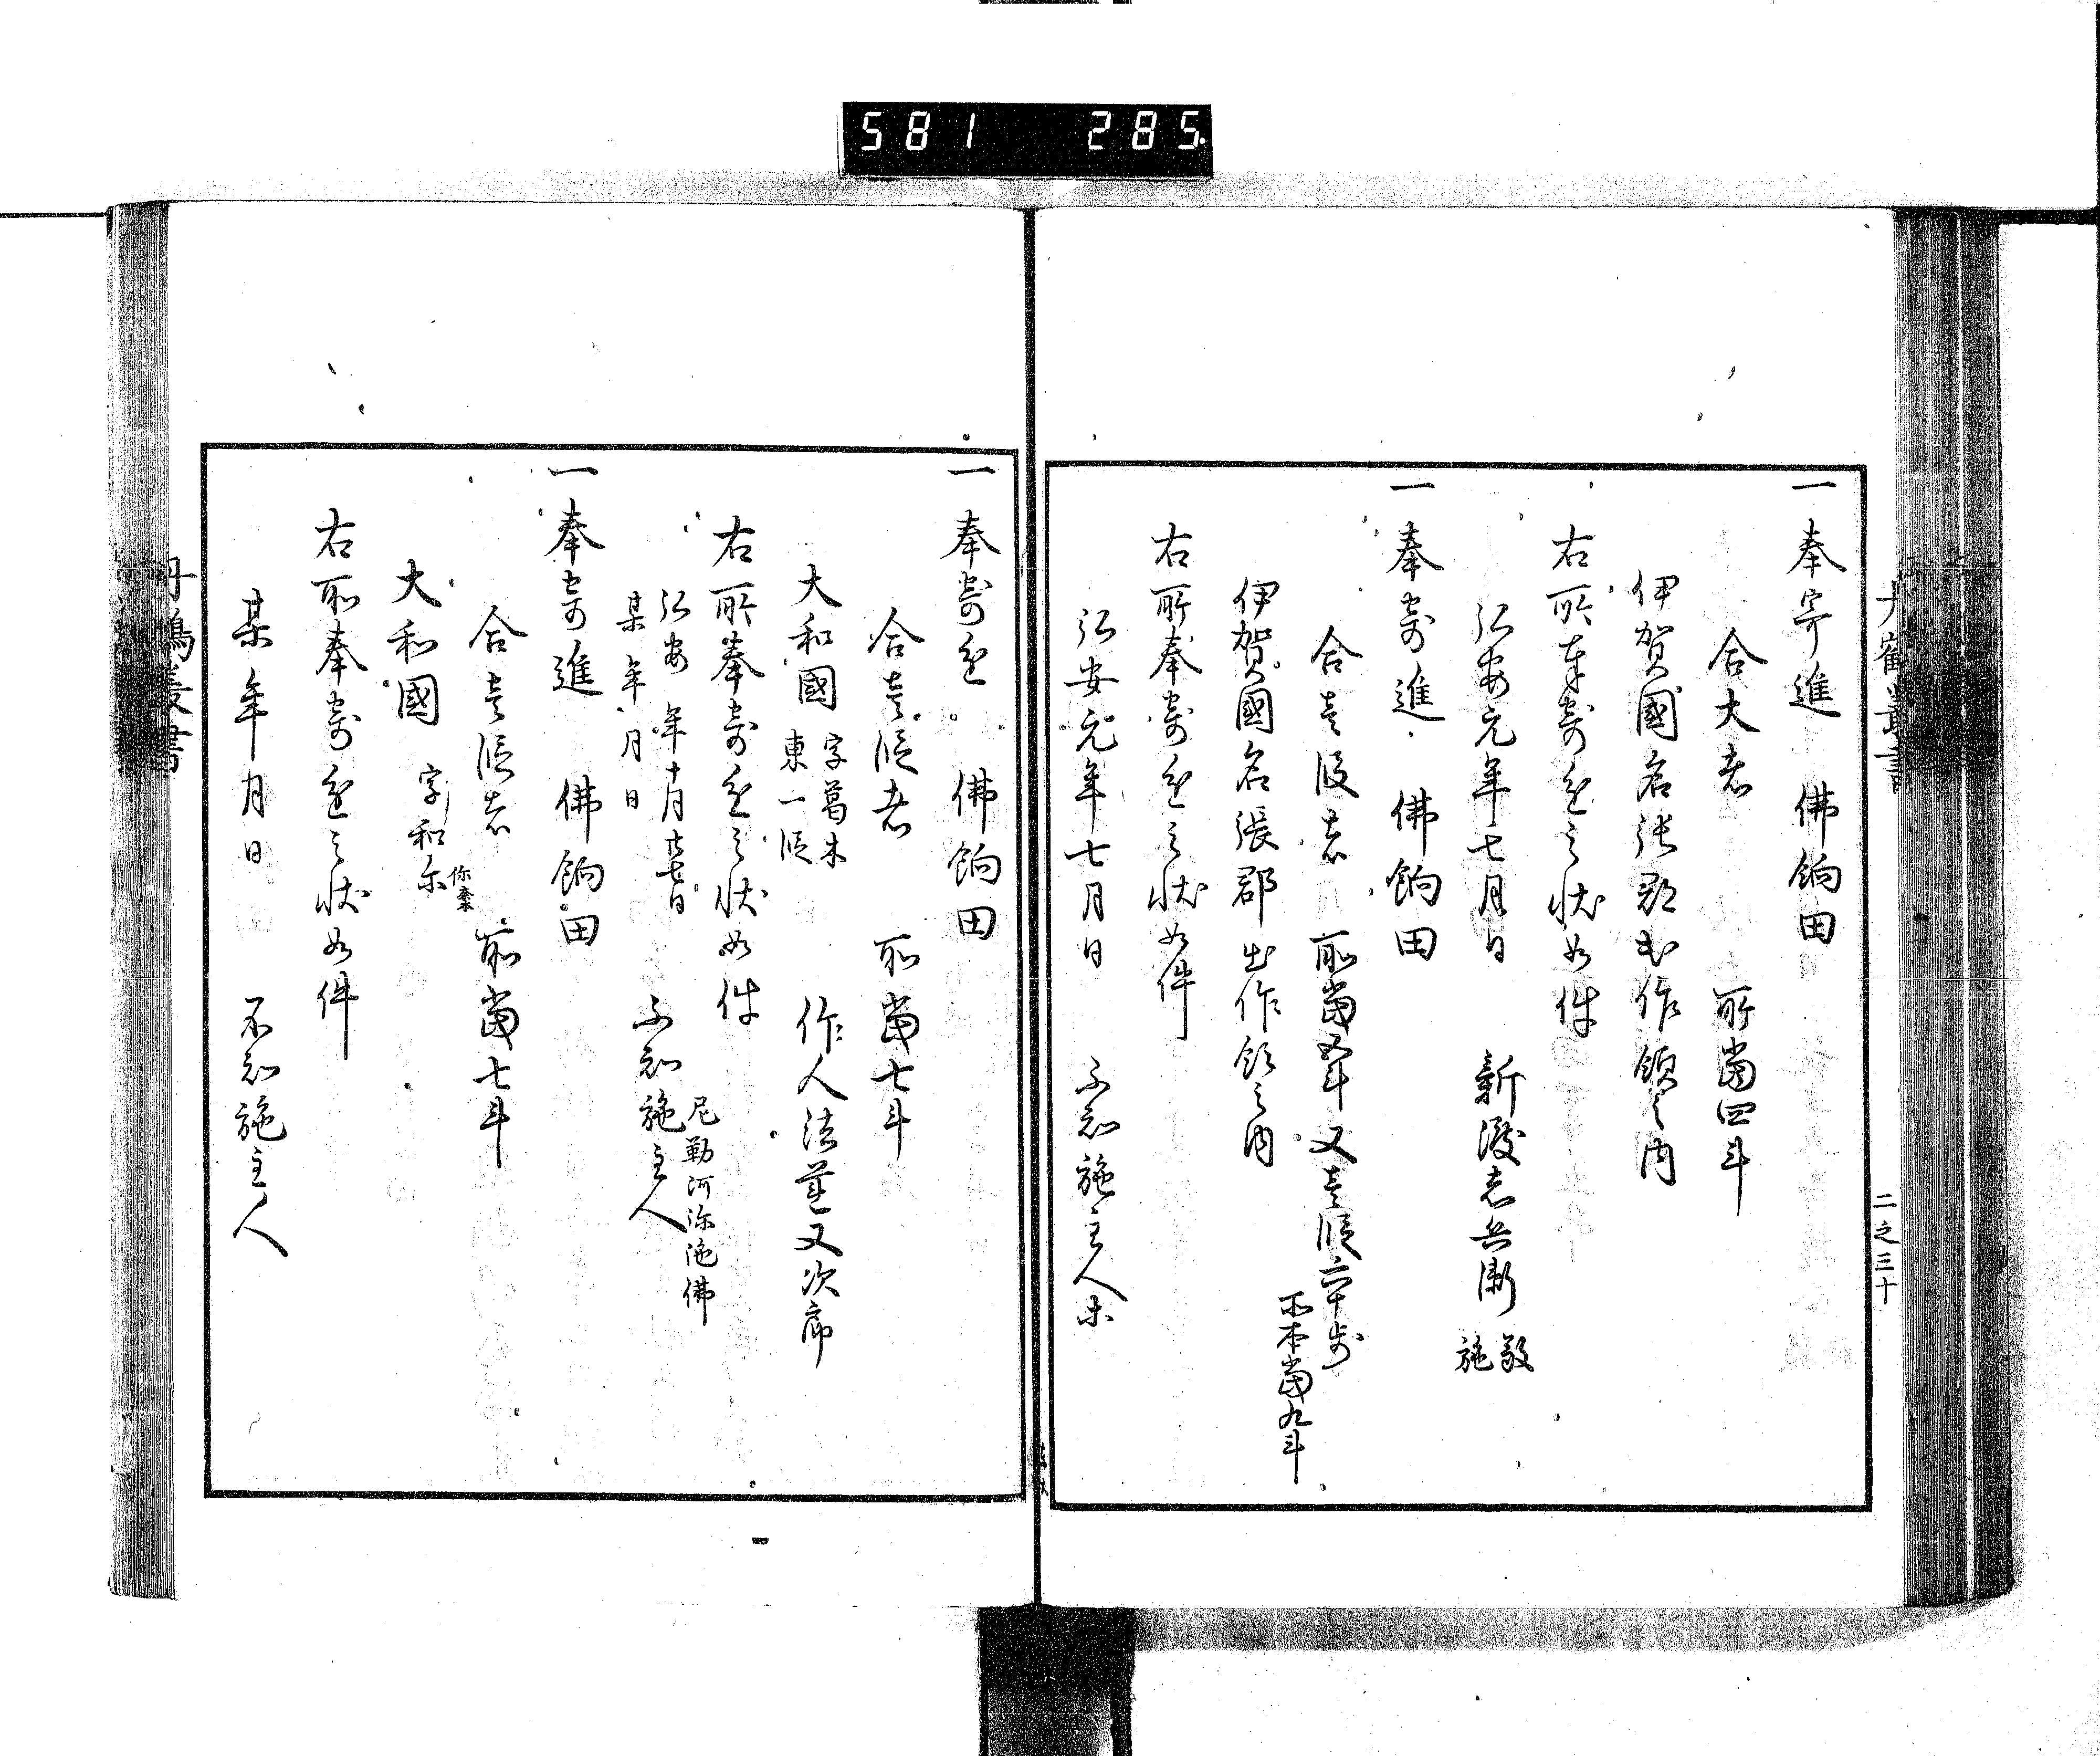 581 285
丹鶴叢書
二之三十
一奉寄進 佛餉田
合大者 所當四斗
伊賀國名張郡出作領之内
右所奉寄進之状如件
弘安元年七月日
施
一奉寄進 佛餉田
合壹段者 所當 斗 又壹段六十歩
所當九斗
伊賀國名張郡出作領之内
右所奉寄進之状如件
弘安元年七月日 不知施主人
一奉寄進 佛餉田
合壹段者 所當七斗
大和國 字葛木
東一段 作人法蓮又次席
右所奉寄進之状如件
弘安 年十月 日 尼勒阿弥陀佛
某年月日 不知施主人
一奉寄進 佛餉田
合壹段者 所當七斗
大和國 字和尓
右所奉寄進之状如件
某年月日 不知施主人
丹鶴叢書